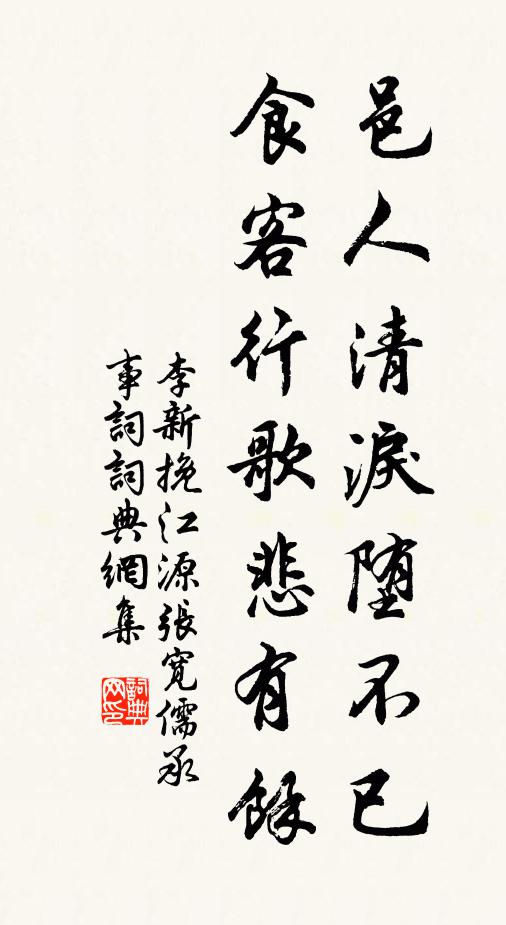 邑人清淚堕不已
食客行歌悲有餘
李新挽江源張寬儒承
事詞詞典網集
詞典
网印